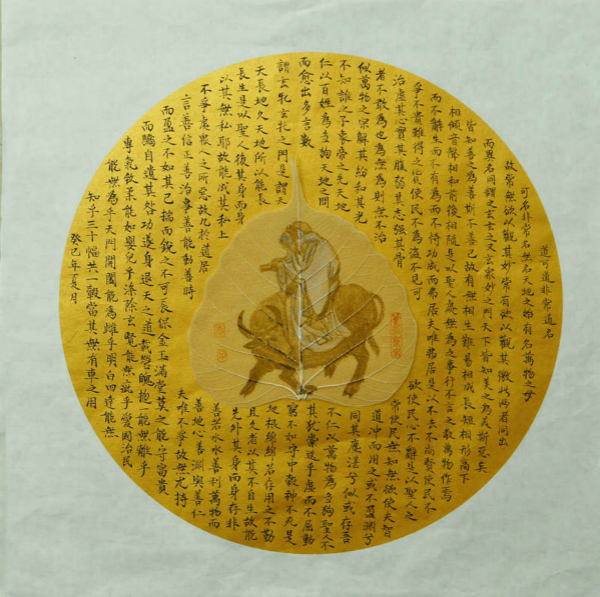 道可道非常道名
可名非常名無名天地之始有名萬物之母
故常無欲以觀其妙常有欲以觀其徼此兩者同出
而異名同謂之玄玄之又玄衆妙之門天下皆知美之為美斯惡矣
皆知善之為善斯不善已故有無相生難易相成長短相形高下
相傾音聲相和前後相隨是以聖人處無為之事行不言之教萬物作焉
而不辭生而不有為而不恃功成而弗居夫唯弗居是以不去不尚賢使民不
爭不貴難得之貨使民不為盜不見可
欲使民心不亂是以聖人之
治虛其心實其腹弱其志強其骨
常使民無知無欲使夫智
者不敢為也為無為則無不治
道沖而用之或不盈淵兮
似萬物之宗解其紛和其光
同其塵湛兮似或存吾
不知誰之子象帝之先天地
不仁以萬物為芻狗聖人不
仁以百姓為芻狗天地之間
其猶橐迭乎虛而不屈動
而愈出多言數
窮不如守中谷神不死是
謂玄牝玄牝之門是謂天
地根綿綿若存用之不勤
天長地久天地所以能長
且久者以其不自生故能
長生是以聖人後其身而身
先外其身而身存非
以其無私耶故能成其私上
善若水水善利萬物而
不爭處衆人之所惡故几於道居
善地心善淵與善仁
言善信正善治事善能動善時
夫唯不爭故無尤持
而盈之不如其已揣而銳之不可長保金玉滿堂莫之能守富貴
而驕自遺其咎功遂身退天之道載營魄抱一能無離乎
專氣致柔能如嬰兒乎滌除玄覽能無疵乎愛國治民
能無為乎天門開闔能為雌乎明白四達能無
知乎三十輻共一轂當其無有車之用
癸巳年夏月